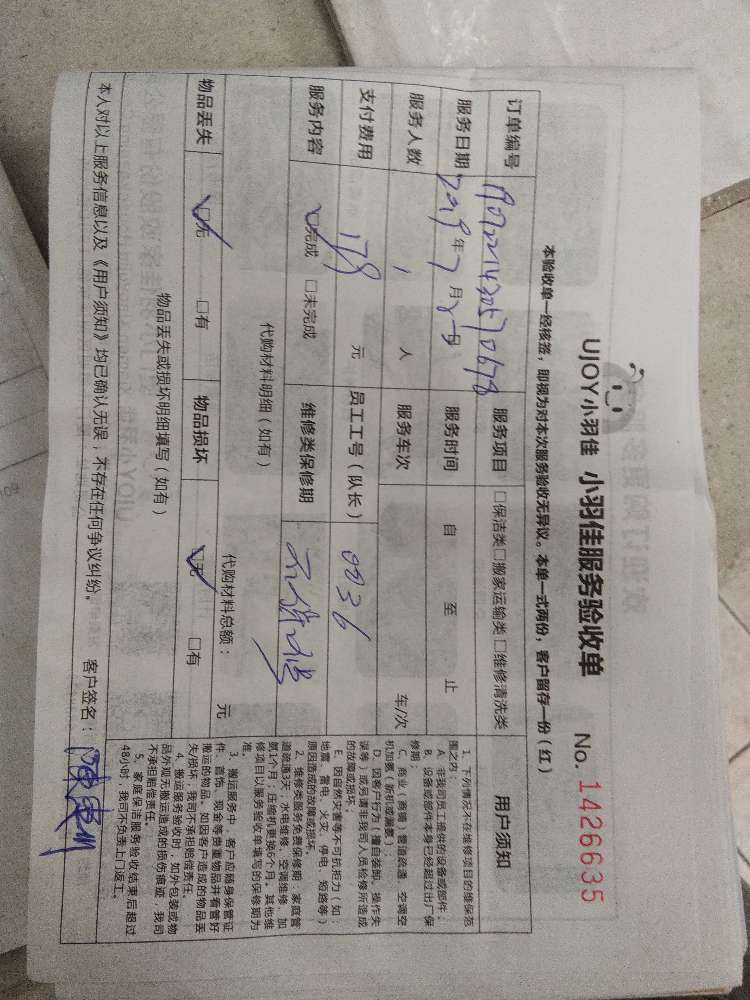 UJOY小羽佳 小羽佳服务验收单 No. 1426635
本验收单一经核签，即视为对本次服务验收无异议。本单一式两份，客户留存一份（红）
订单编号 服务项目 □保洁类□搬家运输类□维修清洗类
服务日期 2019年7月 日 服务时间 自 至 止
服务人数 1 人 服务车次 车/次
支付费用 178 元 员工工号（队长） 0836
服务内容 □完成 □未完成 维修类保修期
代购材料明细（如有） 代购材料总额： 元
物品丢失 □无 □有 物品损坏 □无 □有
物品丢失或损坏明细填写（如有）
本人对以上服务信息以及《用户须知》均已确认无误，不存在任何争议纠纷。 客户签名：
用户须知
1、下列情况不在维修项目的维保范
围之内：
A、非我司员工提供的设备或部件；
B、设备或部件本身已经超过出厂保
修期；
C、商业（商铺）管道疏通、空调空
机加氨（新机或漏氨）；
D、因客户行为（擅自装卸、操作失
误等）或另请非我司人员检修所造成
的故障或损坏。
E、因自然灾害等不可抗拒力（如：
地震、雷电、火灾、停电、短路等）
原因造成的故障或损坏
2、维修类服务免费保修期：家庭管
道疏通3天，水电维修、空调维修、加
氨1个月；压缩机更换6个月。其他维
修项目以服务验收单填写的保修期为
准。
3、搬运服务中，客户应随身保管证
件、首饰、现金等贵重物品并看管好
搬运的物品。如因客户造成的物品丢
失/损坏，我司不承担赔偿责任。
4、搬运服务验收时，如外包装或物
品外观无搬运造成的损伤痕迹，我司
不承担赔偿责任。
5、家庭保洁服务验收结束后超过
48小时，我司不负责上门返工。